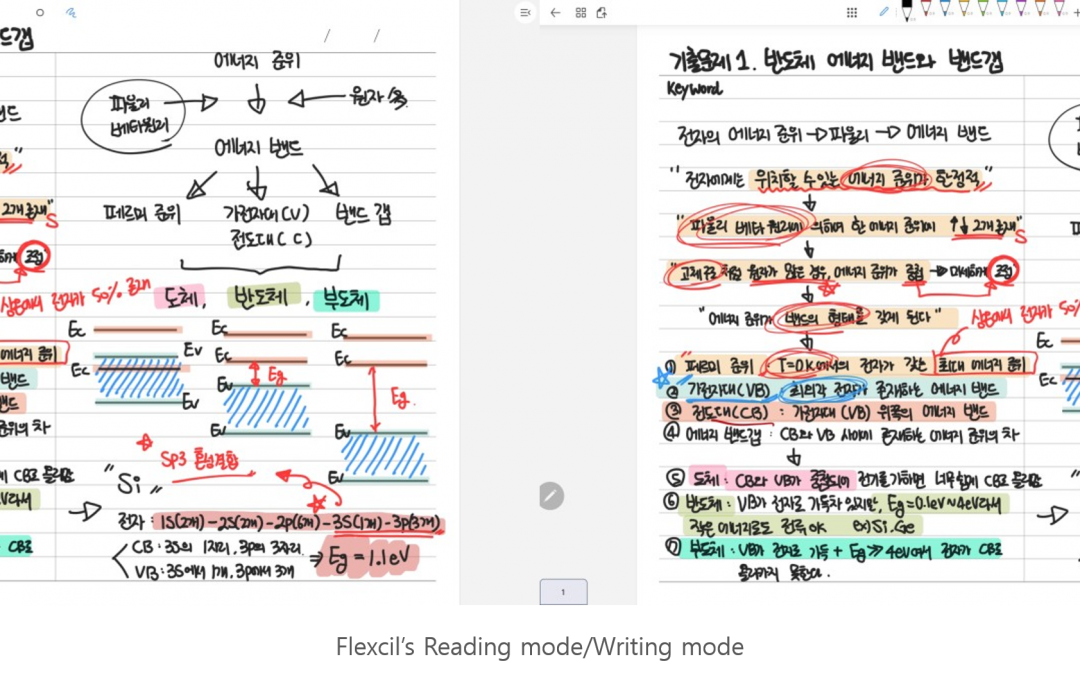 드갭
/ /
에너지 준위
파울리
베타원리
원자
에너지 밴드
페르미 준위
가전자대(V)
전도대(C)
밴드 갭
2개존재"
S
중첩"
상온에서 전자가 50% 존재
도체, 반도체, 부도체
Ec
Ev
Ec
Ev
Ec
Ec
Eg
Ev
Ev
Ec
Ec
Eg
Ev
Ev
에너지 준위
밴드
밴드
준위의 차
SP3 혼성결합
"Si"
CB로 올라감
전자 : 1S(2개)-2S(2개)-2p(6개)-3S(1개)-3p(3개)
CB : 3S의 1자리, 3p의 3자리
VB : 3S에서 1개, 3p에서 3개
⇒ Eg = 1.1eV
CB로
기출문제 1. 반도체 에너지 밴드와 밴드갭
Keyword
전자의 에너지 준위 → 파울리 → 에너지 밴드
"전자에게는 위치할 수 있는 에너지 준위가 한정적"
"파울리 베타 원리에 의하여 한 에너지 준위에 ↑↓ 2개존재"
S
"고체구조처럼 원자가 많은 경우, 에너지 준위가 중첩 → 미세하게 중첩"
"에너지 준위가 밴드의 형태를 갖게 된다"
상온에서 전자가 50%
① 페르미 준위 T=0K에서의 전자가 갖는 최대 에너지 준위
② 가전자대(VB) : 최외각 전자가 존재하는 에너지 밴드
③ 전도대(CB) : 가전자대(VB) 위쪽의 에너지 밴드
④ 에너지 밴드갭 : CB와 VB 사이에 존재하는 에너지 준위의 차
Ec
Ec
⑤ 도체 : CB와 VB가 중첩되어 전기를 가하면 너무쉽게 CB로 올라감
⑥ 반도체 : VB가 전자로 가득차 있지만, Eg=0.1eV~4eV라서
작은 에너지로도 전도 OK ex) Si, Ge
⑦ 부도체 : VB가 전자로 가득 + Eg≫4eV라서 전자가 CB로
올라가지 못한다.
1
Flexcil's Reading mode/Writing mode